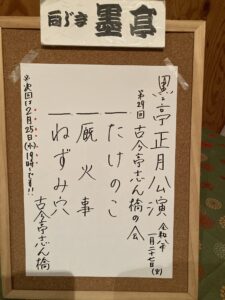 向じま 墨亭
墨亭正月公演
令和八年
一月二十七日(火)
第29回 古今亭志ん橋の会
一 たけのこ
一 厩火事
一 ねずみ穴
古今亭志ん橋
※次回は2月25日(水)19時〜です!!